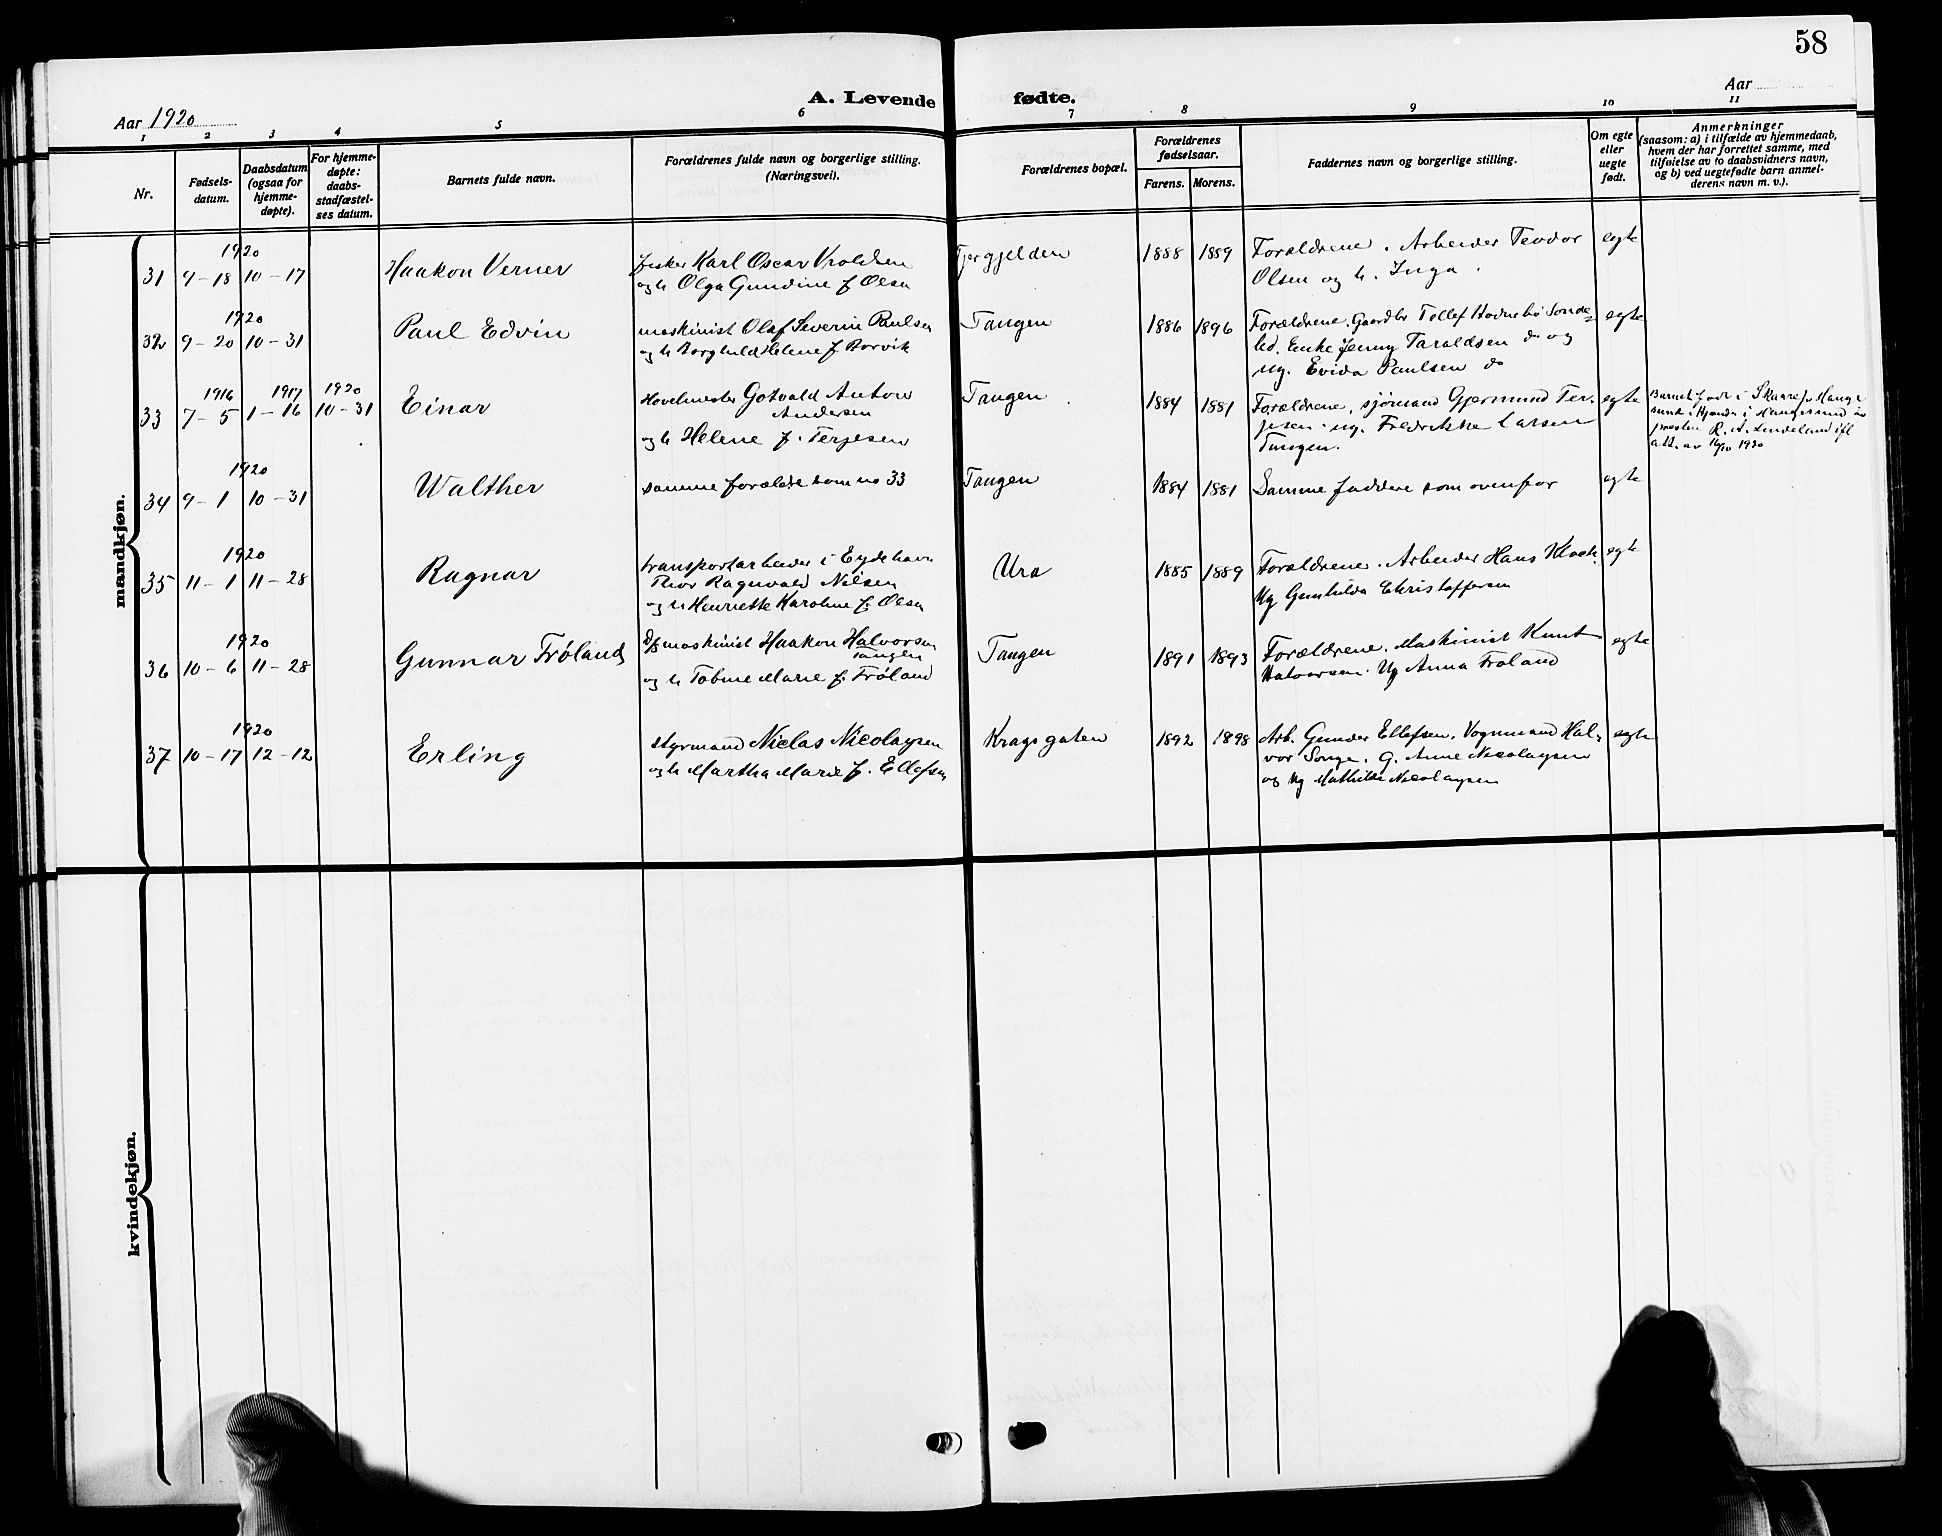 58
Aar 1920
A. Levende fødte.
Aar
1 2 3 4 5 6 7 8 9 10 11
Nr.
Fødsels-
datum.
Daabsdatum
(ogsaa for
hjemme-
døpte).
For hjemme-
døpte:
daabs-
stadfæstel-
ses datum.
Barnets fulde navn.
Forældrenes fulde navn og borgerlige stilling.
(Næringsvei).
Forældrenes bopæl.
Forældrenes
fødselsaar.
Farens. Morens.
Faddernes navn og borgerlige stilling.
Om egte
eller
uegte
født.
Anmerkninger
(saasom: a) i tilfælde av hjemmedaab,
hvem der har forrettet samme, med
tilføielse av to daabsvidners navn,
og b) ved uegtefødte barn anmel-
derens navn m. v.).
mandkjøn.
1920
31 9-18 10-17 Haakon Verner
fisker Karl Oscar Vroldsen
og h Olga Gundine f Olsen
1888 1889
Forældrene. Arbeider Teodor
Olsen og h. Inga.
egte
1920
32 9-20 10-31 Paul Edvin
maskinist Olaf Severin Paulsen
og h Borghild Helene f Borvik
Tangen
1886 1896
Forældrene. Gaardbr Tellef Sønde-
led. Enke Jenny Taraldsen do og
ug. Evida Paulsen do
egte
1916 1917 1920
33 7-5 1-16 10-31 Einar
Hovelmester Gotvald Anton
Andersen
og h Helene f. Terjesen
Tangen
1884 1881
Forældrene, sjømand Gjermund Ter-
jesen. ug. Fredrikke Larsen
Tangen.
egte
Barnet født i Skaare pr Hauge
sund. Hjemdøpt i Haugesund av
presten R. A. Lindeland ifl
att. av 16/10 1920
1920
34 9-1 10-31 Walther
samme forældre som no 33
Tangen
1884 1881
Samme faddere som ovenfor
egte
1920
35 11-1 11-28 Ragnar
transportarbeider i Eydehavn
Thor Ragnvald Nilsen
og h Henriette Karoline f. Olsen
Ura
1885 1889
Forældrene. Arbeider Hans
Ug Gunhilda Christoffersen
egte
1920
36 10-6 11-28 Gunnar Frøland
maskinist Haakon Halvorsen
Tangen
og h Tobine Marie f. Frøland
Tangen
1891 1893
Forældrene. Maskinist Knut
Halvorsen. Ug Anna Frøland
egte
1920
37 10-17 12-12 Erling
styrmand Niclas Nicolaysen
og h Martha Marie f. Ellefsen
Kragsgaten
1892 1898
Arb. Gunder Ellefsen. Vognmand Hal-
vor Songe. G. Anne Nicolaysen
og Ug Mathilde Nicolaysen
egte
kvindekjøn.